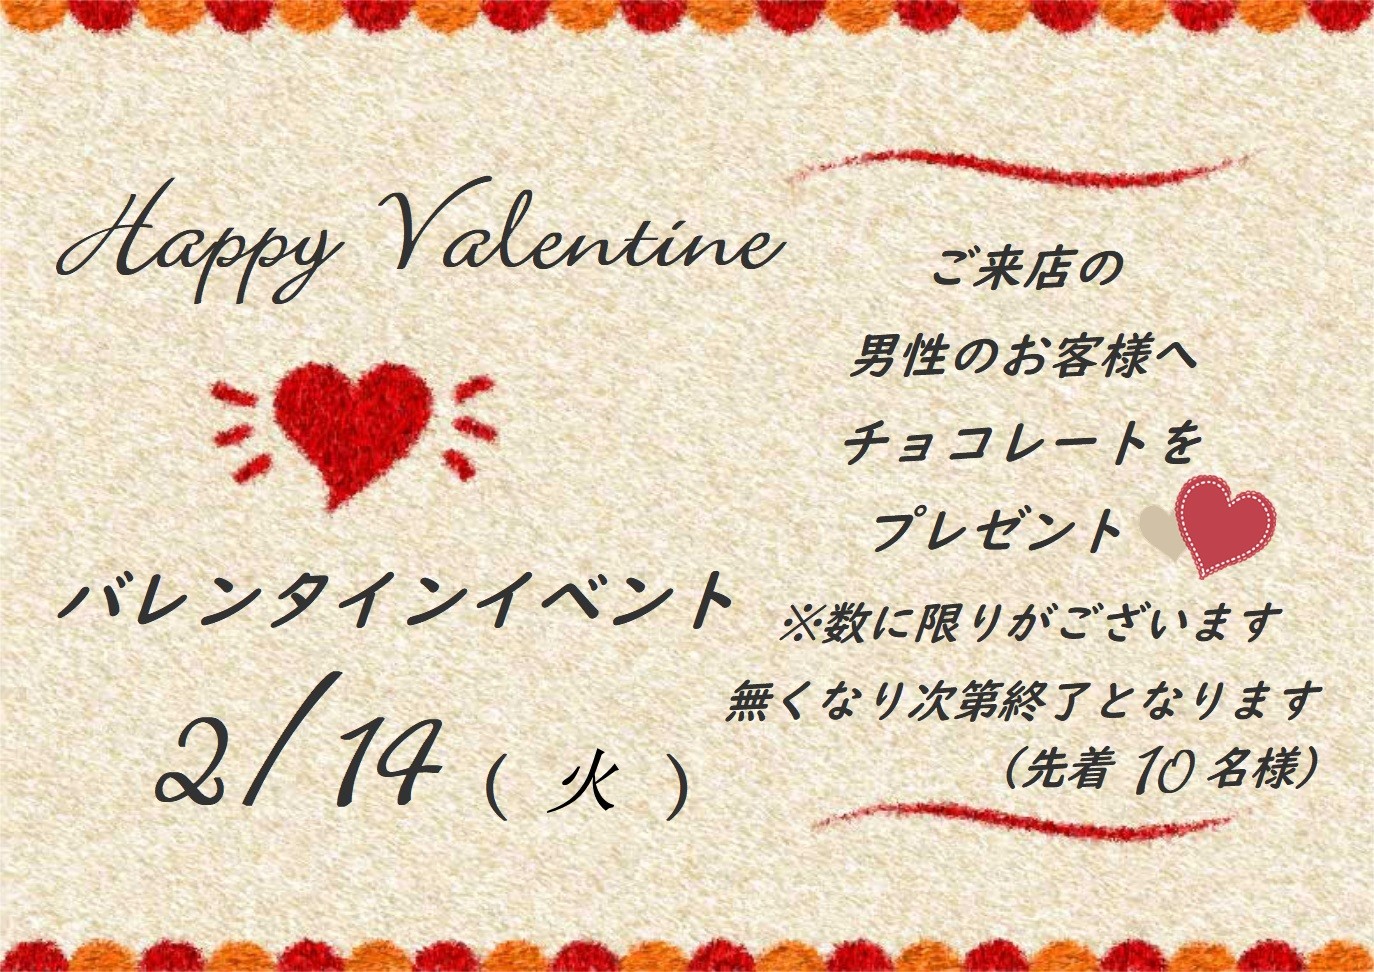 Happy Valentine
バレンタインイベント
2/14 ( 火 )
ご来店の
男性のお客様へ
チョコレートを
プレゼント
※数に限りがございます
無くなり次第終了となります
(先着 10 名様)